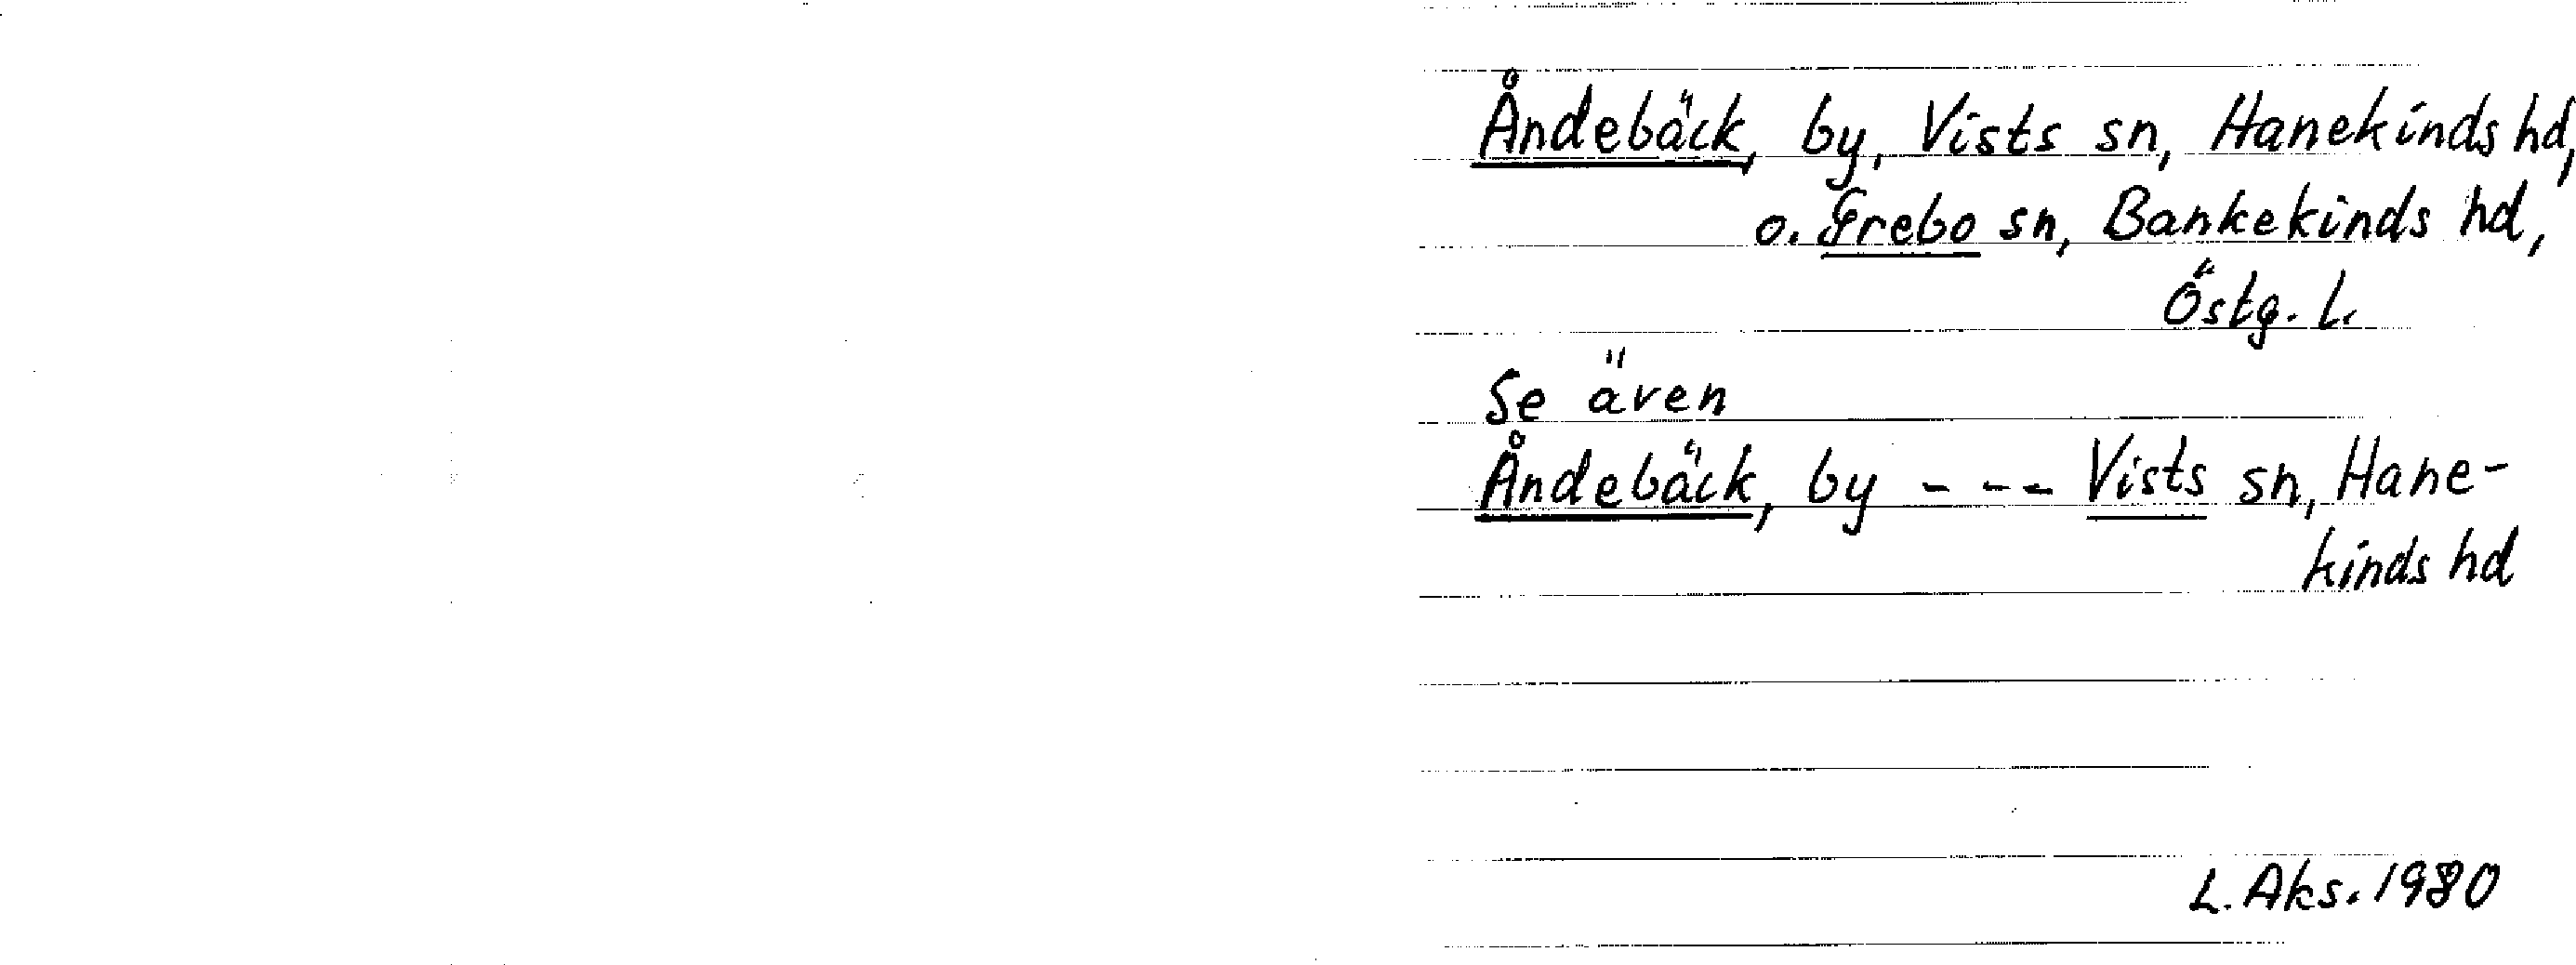 Åndebäck, by, Vists sn, Hanekinds hd,
o. Grebo sn, Bankekinds hd,
Östg. l.
Se även
Åndebäck, by - - - Vists sn, Hane-
kinds hd
L. Aks. 1980